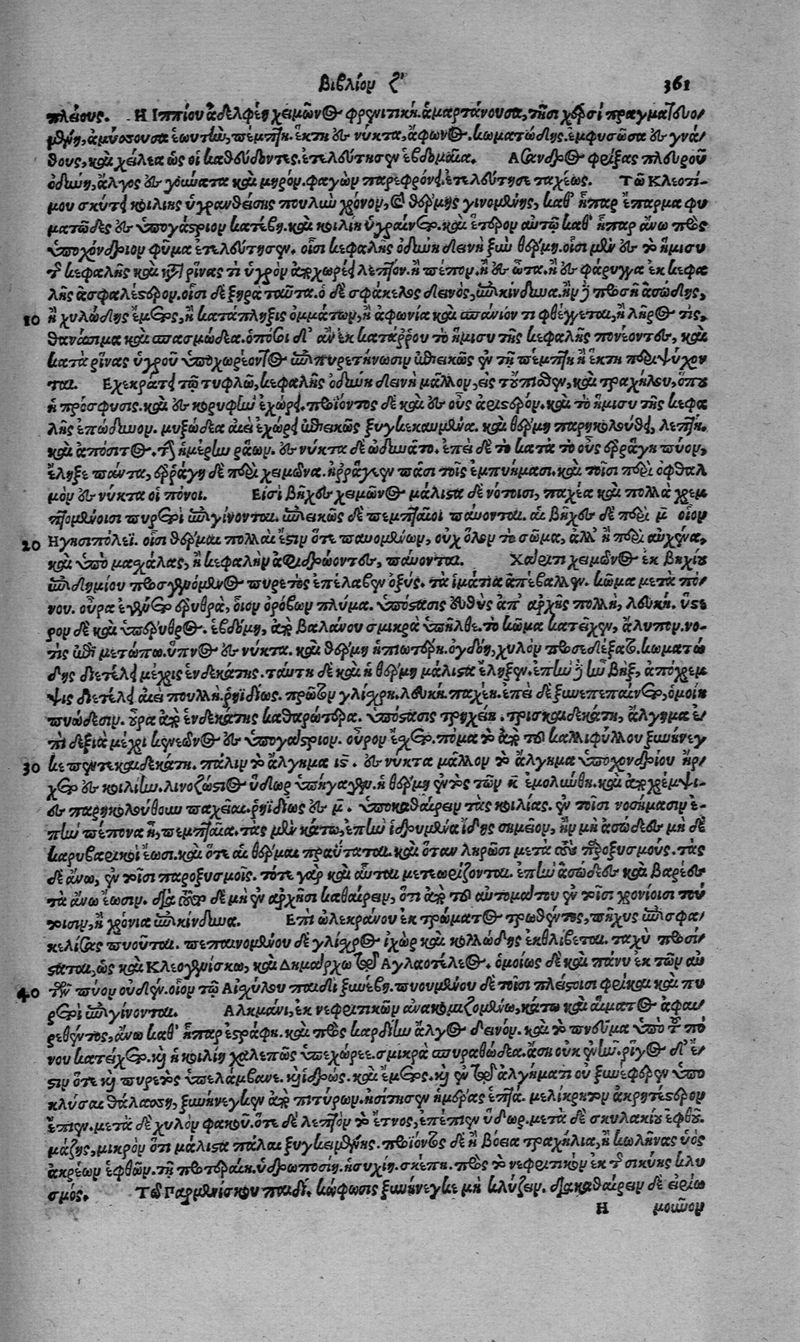 Βιβλίον ζʹ 361
πλέους. Η Ιππίου ἀδελφεὴ χειμῶνος φρενιτική. ἁμαρτάνουσα, τῇσι χερσὶ πραγματευο/
μένη, ἀμύσσουσα ἑωυτὴν, πέμπτῃ. ἕκτῃ ἐς νύκτα, ἄφωνος. κωματώδης. ἐμφυσῶσα ἐς γνά/
θους, καὶ χείλεα ὡς οἱ καθεύδοντες. ἐτελεύτησεν ἑβδομαία. Ασανδρος φρίξας πλευροῦ
ὀδύνη, ἄλγος ἐς γούνατα καὶ μηρόν. φαγὼν παρεφρόνει. ἐτελεύτησε ταχέως. Τῷ Κλεοτί-
μου σκυτεῖ κοιλίης ὑγρανθείσης πουλὺν χρόνον, καὶ θέρμης γινομένης, καθ' ἧπαρ ἔπαρμα φυ
ματῶδες ἐς ὑπογάστριον κατέβη. καὶ κοιλίη ὑγραίνετο. καὶ ἕτερον αὐτῷ καθ' ἧπαρ ἄνω πρὸς
ὑποχόνδριον φῦμα ἐτελεύτησεν. οἷσι κεφαλῆς ὀδύνη δεινὴ ξὺν θέρμῃ. οἷσι μὲν ἐς τὸ ἥμισυ
τῆς κεφαλῆς καὶ κατὰ ῥῖνας τι ὑγρὸν ἀποχωρέει λεπτὸν. ἢ πέπον. ἢ ἐς ὦτα. ἢ ἐς φάρυγγα ἐκ κεφα
λῆς ἀσφαλέστερον. οἷσι δὲ ξηρὰ ταῦτα. ὁ δὲ σφάκελος δεινὸς, ἐπικίνδυνα. ἢν δὲ προσῇ ἀσώδης,
10 ἢ χυλώδης ἔμετος, ἢ κατάπληξις ὀμμάτων, ἢ ἀφωνία καὶ σπανιόν τι φθέγγεται, ἢ λῆρός τις,
θανάσιμα καὶ σπασμώδεα. ὁπόσοι δ' ἂν ἐκ κατάρρου τὸ ἥμισυ τῆς κεφαλῆς πονέοντες, καὶ
κατὰ ῥῖνας ὑγροῦ ὑποχωρέοντος ἐπιπυρετήνωσιν ἐπιεικῶς ἐν τῇ πέμπτῃ ἢ ἕκτῃ περιψύχον
ται. Εχεκράτει τῷ τυφλῷ, κεφαλῆς ὀδύνη δεινὴ μᾶλλον, ἐς τοὔπισθεν, καὶ τραχήλου, ὅπου
ἡ πρόσφυσις. καὶ ἐς κορυφὴν ἐχώρει. προϊόντος δὲ καὶ ἐς οὖς ἀριστερόν. καὶ τὸ ἥμισυ τῆς κεφα
λῆς ἐπώδυνον. μυξώδεα ἀεὶ ἐχώρει ἐπιεικῶς ξυγκεκαυμένα. καὶ θέρμη παρηκολούθει, λεπτή.
καὶ ἀπόσιτος. τὴν ἡμέρην ῥᾴων. ἐς νύκτα δὲ ὠδυνᾶτο. ἐπεὶ δὲ τὸ κατὰ τὸ οὖς ἐρράγη πύον,
ἔληξε πάντα, ἐρράγη δὲ περὶ χειμῶνα. ἠρράγη ἐν πᾶσι τοῖς ἐμπυήμασι. καὶ τοῖσι περὶ ὀφθαλ
μὸν ἐς νύκτα οἱ πόνοι. Εἰσὶ βῆχες χειμῶνος μάλιστα δὲ νότοισι, παχέα καὶ πολλὰ χρεμ
πτομένοισι πυρετοὶ ἐπιγίνονται. ἐπιεικῶς δὲ πεμπταῖοι παύονται. αἱ βῆχες δὲ περὶ μ̄ οἷον
20 Ηγησιπόλει. οἷσι θέρμαι πολλαί εἰσιν ὅτε παυομένων, οὐχ ὅλον τὸ σῶμα, ἀλλ' ἢ περὶ αὐχένα,
καὶ ὑπὸ μασχάλας, ἢ κεφαλὴν ἀφιδρώοντες, παύονται. Χαρτι χειμῶνος ἐκ βηχὸς
ἐπιδημίου προσγενομένης πυρετὸς ἐπέλαβεν ὀξύς. τὰ ἱμάτια ἀπέβαλλεν. κῶμα μετὰ πό/
νου. οὖρα ἐγένετο ἐρυθρὰ, οἷον ὀρόβων πλύμα. ὑπόστασις εὐθὺς ἀπ' ἀρχῆς πολλὴ, λευκή. ὕστε
ρον δὲ καὶ ὑπέρυθρος. ἑβδόμῃ, ἀπὸ βαλάνου σμικρὰ ὑπῆλθε. τὸ κῶμα κατεῖχεν, ἄλυπον. νο-
τὶς ἐπὶ μετώπῳ. ὕπνος ἐς νύκτα. καὶ θέρμη ἠπιωτέρη. ὀγδόῃ, χυλὸν προσεδέξατο. κωματώ
δης διετέλει μέχρις ἑνδεκάτης. ταύτῃ δὲ καὶ ἡ θέρμη μάλιστα ἔληξεν. ἐπὶ δὲ ἣν βὴξ, ἀπόχρεμ
ψις διετέλει ἀεὶ πουλλὴ. ῥηϊδίως. πρῶτον γλίσχρη. λευκή. παχέη. ἐπεὶ δὲ ξυνεπεπαίνετο, ὁμοίη
πυώδεσιν. οὖρα ἀπὸ ἑνδεκάτης καθαρώτερα. ὑπόστασις τρηχείη. τρισκαιδεκάτῃ, ἄλγημα ἐ/
πὶ δεξιὰ μέχρι κενεῶνος ἐς ὑπογάστριον. οὖρον ἔσχετο. πόμα τὸ ἀπὸ τοῦ καλλιφύλλου ξυνήνεγ
30 κε πεντεκαιδεκάτῃ. πάλιν τὸ ἄλγημα ιϛ. ἐς νύκτα μᾶλλον τὸ ἄλγημα ὑποχονδρίου ἤρ/
χετο ἐς κοιλίην. λινοζώστιος ὕδωρ ὑπήγαγεν. ἡ θέρμη ἐντὸς τῶν κ̄ ἐμολύνθη. καὶ ἀποχρέμψι-
ες παρηκολούθουν παχεῖαι. ῥηϊδίως ἐς μ̄. ὑποκαθαίρειν τὰς κοιλίας. ἐν τοῖσι νοσήμασιν ἐ-
πὴν πέπονα ᾖ, πεμπταῖα. τὰς μὲν κάτω, ἐπὴν ἱδρυμένα ἴδῃς σημεῖον, ἢν μὴ ἀσώδεες μὴ δὲ
καρυβαρικοὶ ἔωσι. καὶ ὅτε αἱ θέρμαι πραΰταται. καὶ ὅταν ληρῶσι μετὰ τοὺς παροξυσμοὺς. τὰς
δὲ ἄνω, ἐν τοῖσι παροξυσμοῖς. τότε γὰρ καὶ αὗται μετεωρίζονται. ἐπὴν ἀσώδεες καὶ βαρέες
τὰ ἄνω ἔωσιν. διὰ τοῦτο δὲ μὴ ἐν ἀρχῇσι καθαίρειν, ὅτι ἀπὸ τοῦ αὐτομάτου ἐν τοῖσι χρονίοισι που
τοισιν, ἢ χρόνια ἐπικίνδυνα. Επὶ ὠλεκράνου ἐκ τρώματος τρωθέντος, πῆχυς ἐπισφα/
κελίζας πυοῦται. πεπαινομένου δὲ γλίσχρος ἰχὼρ καὶ κολλώδης ἐκθλίβεται. ταχὺ προσί/
σταται, ὡς καὶ Κλεογενίσκῳ, καὶ Δημάρχῳ τῷ Αγλαοτέλεος. ὁμοίως δὲ καὶ πάνυ ἐκ τῶν αὐ
40 τῶν πύον οὐδέν. οἷον τῷ Αἰσχύλου παιδὶ ξυνέβη. πυουμένου δὲ τοῖσι πλείστοισι φρίκαι καὶ πυ
ρετοὶ ἐπιγίνονται. Αλκμάνι, ἐκ νεφριτικῶν ἀνακομιζομένῳ, κάτω καὶ αἵματος ἀφαι/
ρεθέντος, ἄνω καθ' ἧπαρ ἐτράφη. καὶ πρὸς καρδίην ἄλγος δεινόν. καὶ τὸ πνεῦμα ὑπὸ τοῦ πό
νου κατείχετο. καὶ ἡ κοιλίη χαλεπῶς ὑπεχώρεε. σμικρὰ σπυραθώδεα. ἄση οὐκ ἐνῆν. ῥῖγος δ' ἔ/
σιν ὅτε καὶ πυρετὸς ὑπελάμβανε. καὶ ἱδρώς. καὶ ἔμετος. καὶ ἐν τῷ ἀλγήματι οὐ ξυνέφερεν ὑπο
κλύσαι θαλάσσῃ, ξυνήνεγκεν ἀπὸ πιτύρων. ἠσίτησεν ἡμέρας ἑπτά. μελίκρητον ἀκρητέστερον
ἔπινεν. μετὰ δὲ χυλὸν φακοῦ. ὅτε δὲ λεπτὸν τὸ ἔτνος, ἐπέπινεν ὕδωρ. μετὰ δὲ σκυλακίου ἑφθοῦ.
μάζης, μικρὸν ὅτι μάλιστα πάλαι ξυγκειμένης. προϊόντος δὲ ἢ βόεια τραχήλια, ἢ κωλῆνας ὑὸς
ἀκρέων ἑφθῶν. τῇ προτεραίῃ. ὑδροποσίη. ἡσυχίη. σκέπη. πρὸς τὸ νεφριτικὸν ἐκ τῆς σικύης κλυ
σμός. Τῷ Παρμενίσκου παιδὶ. κώφωσις ξυνήνεγκε μὴ κλύζειν. διακαθαίρειν δὲ εἰρίῳ
H μοῦνον